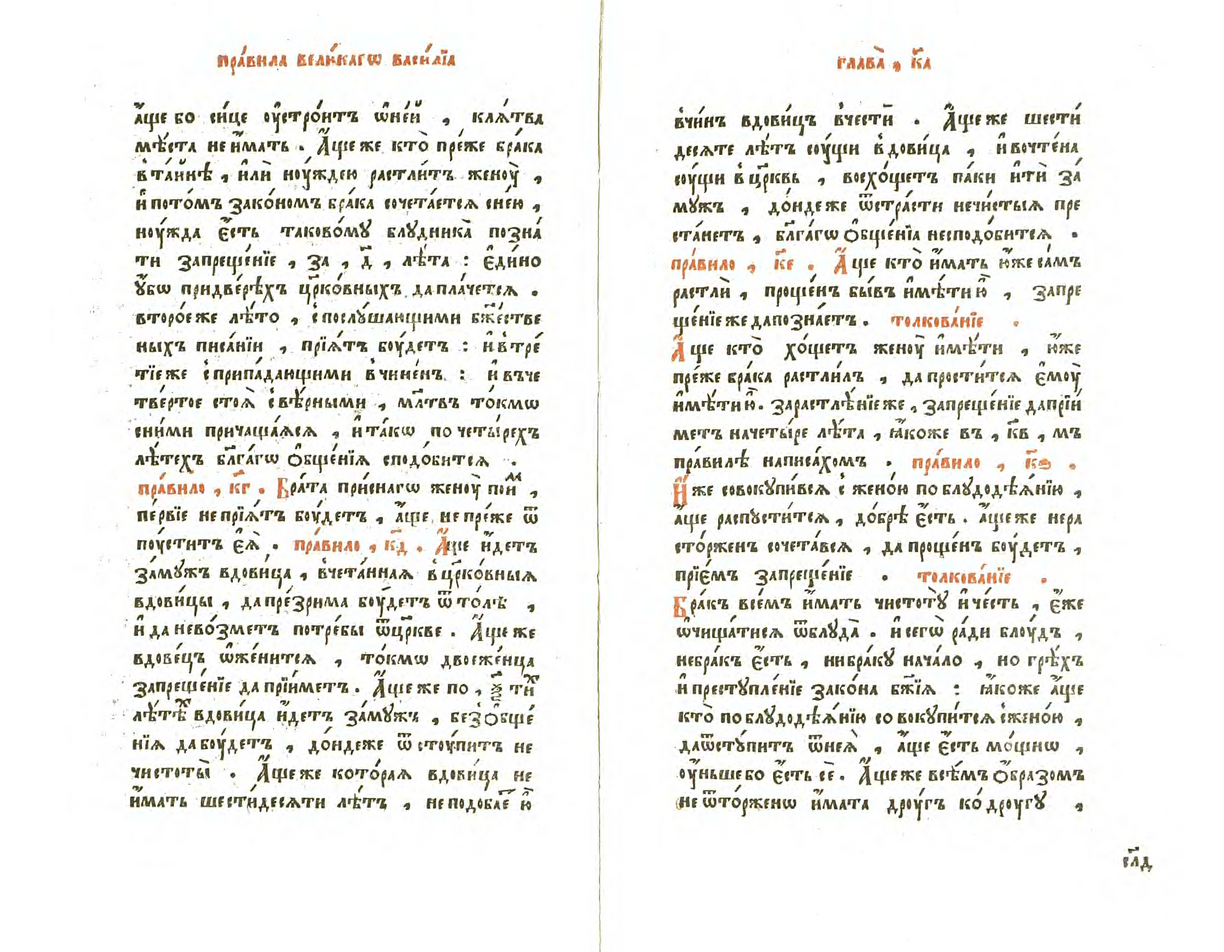 пра́вила вели́кагѡ васи́лїа
а҆́ще бо си́це ᲂу҆стро́итъ ѡ҆не́й , кла́тва
мѣ́ста не и҆́мать . А҆́ще же кто̀ пре́же бра́ка
в та́йнѣ , и҆лѝ ноу́ждею растли́тъ женоу̀ ,
и҆ пото́мъ зако́номъ бра́ка сочета́етсѧ снє́ю ,
ноу́жда є҆́сть таково́му блудника̀ позна́
ти запреще́нїе , за , д҃ , лѣ́та : є҆ди́но
ᲂу҆́бѡ при две́рѣхъ цр҃ко́вныхъ да пла́четсѧ .
второ́е же лѣ́то , с послу́шающими бж҃е́стве
ныхъ писа́нїи , прїѧ́тъ боу́детъ : и҆ в тре́
тїе же с припа́дающими в чине́нъ : и҆ въ че
тве́ртое стоѧ̀ с вѣ́рными , мл҃твъ то́кмѡ
сни́ми причаща́ѧсѧ , и҆ та́кѡ по четы́рехъ
лѣ́техъ бл҃га́гѡ ѻ҆бще́нїѧ сподо́битсѧ .
пра́вило , кг҃ . Бра́та при́снагѡ женоу̀ пои́м ,
пе́рвїе не прїѧ́тъ боу́детъ , а҆́ще не пре́же ѿ
поу́ститъ є҆ѧ̀ . пра́вило , кд҃ . А҆́ще и҆́детъ
за́мужъ вдови́ца , в че́таннаѧ в цр҃ко́вныѧ
вдови́цы , да пре́зрима боу́детъ ѿ то́лѣ ,
и҆ да не во́зметъ потре́бы ѿ цр҃кве . А҆́ще же
вдове́цъ ѡ҆же́нитсѧ , то́кмѡ двоеже́нца
запреще́нїе да прїи́метъ . А҆́ще же по , ѯ҃ ти́х
лѣ́тѣх вдови́ца и҆́детъ за́мужъ , без̾ ѻ҆бще́
нїѧ да боу́детъ , до́ндеже ѿ стоу́питъ не
чистоты̀ . А҆́ще же кото́раѧ вдови́ца не
и҆́мать шести́десѧти лѣ́тъ , не подоба́е ю҆̀
глава̀ , к҃а
в чи́нъ вдови́цъ в че́сти . А҆́ще же шести́
десѧте лѣ́тъ соу́щи вдови́ца , и҆ вочте́на
соу́щи в цр҃квь , восхо́щетъ па́ки и҆тѝ за́
мужъ , до́ндеже ѿ стра́сти нечи́стыѧ пре
ста́нетъ , бл҃га́гѡ ѻ҆бще́нїѧ несподо́битсѧ .
пра́вило , ке҃ . А҆́ще кто̀ и҆́мать ю҆́же са́мъ
растлѝ , проще́нъ бы́въ и҆мѣ́ти ю҆̀ , запре
ще́нїе же да позна́етъ . толкова́нїе .
А҆́ще кто̀ хо́щетъ женоу̀ и҆мѣ́ти , ю҆́же
пре́же бра́ка растли́лъ , да прости́тсѧ є҆моу̀
и҆мѣ́ти ю҆̀ . за растлѣ́нїе же , запреще́нїе да прїи́
метъ на четы́ре лѣ́та , ꙗ҆́коже въ , кв҃ , мъ
пра́вилѣ написа́хомъ . пра́вило , кѕ҃ .
И҆́же совокупи́всѧ с жено́ю по блудодѣѧ́нїю ,
а҆́ще распусти́тсѧ , до́брѣ є҆́сть . а҆́ще же нера
сто́рженъ сочета́всѧ , да проще́нъ боу́детъ ,
прїе́мъ запреще́нїе . толкова́нїе .
Бра́къ всѣ́мъ и҆́мать чистоту̀ и҆ че́сть , є҆́же
ѡ҆чища́тисѧ ѿ блуда̀ . и҆ сегѡ̀ ра́ди блоу́дъ ,
небра́къ є҆́сть , ни бра́ку нача́ло , но грѣ́хъ
и҆ преступле́нїе зако́на бж҃їѧ : ꙗ҆́коже а҆́ще
кто̀ по блудодѣѧ́нїю совоку́питсѧ с жено́ю ,
да ѿсту́питъ ѡ҆ нєѧ̀ , а҆́ще є҆́сть мо́щнѡ ,
ᲂу҆́ньше бо є҆́сть сѐ . А҆́ще же всѣ́мъ ѻ҆́бразомъ
не ѿто́рженѡ и҆́мата дроу́гъ ко́ дроугу ,
сл҃д